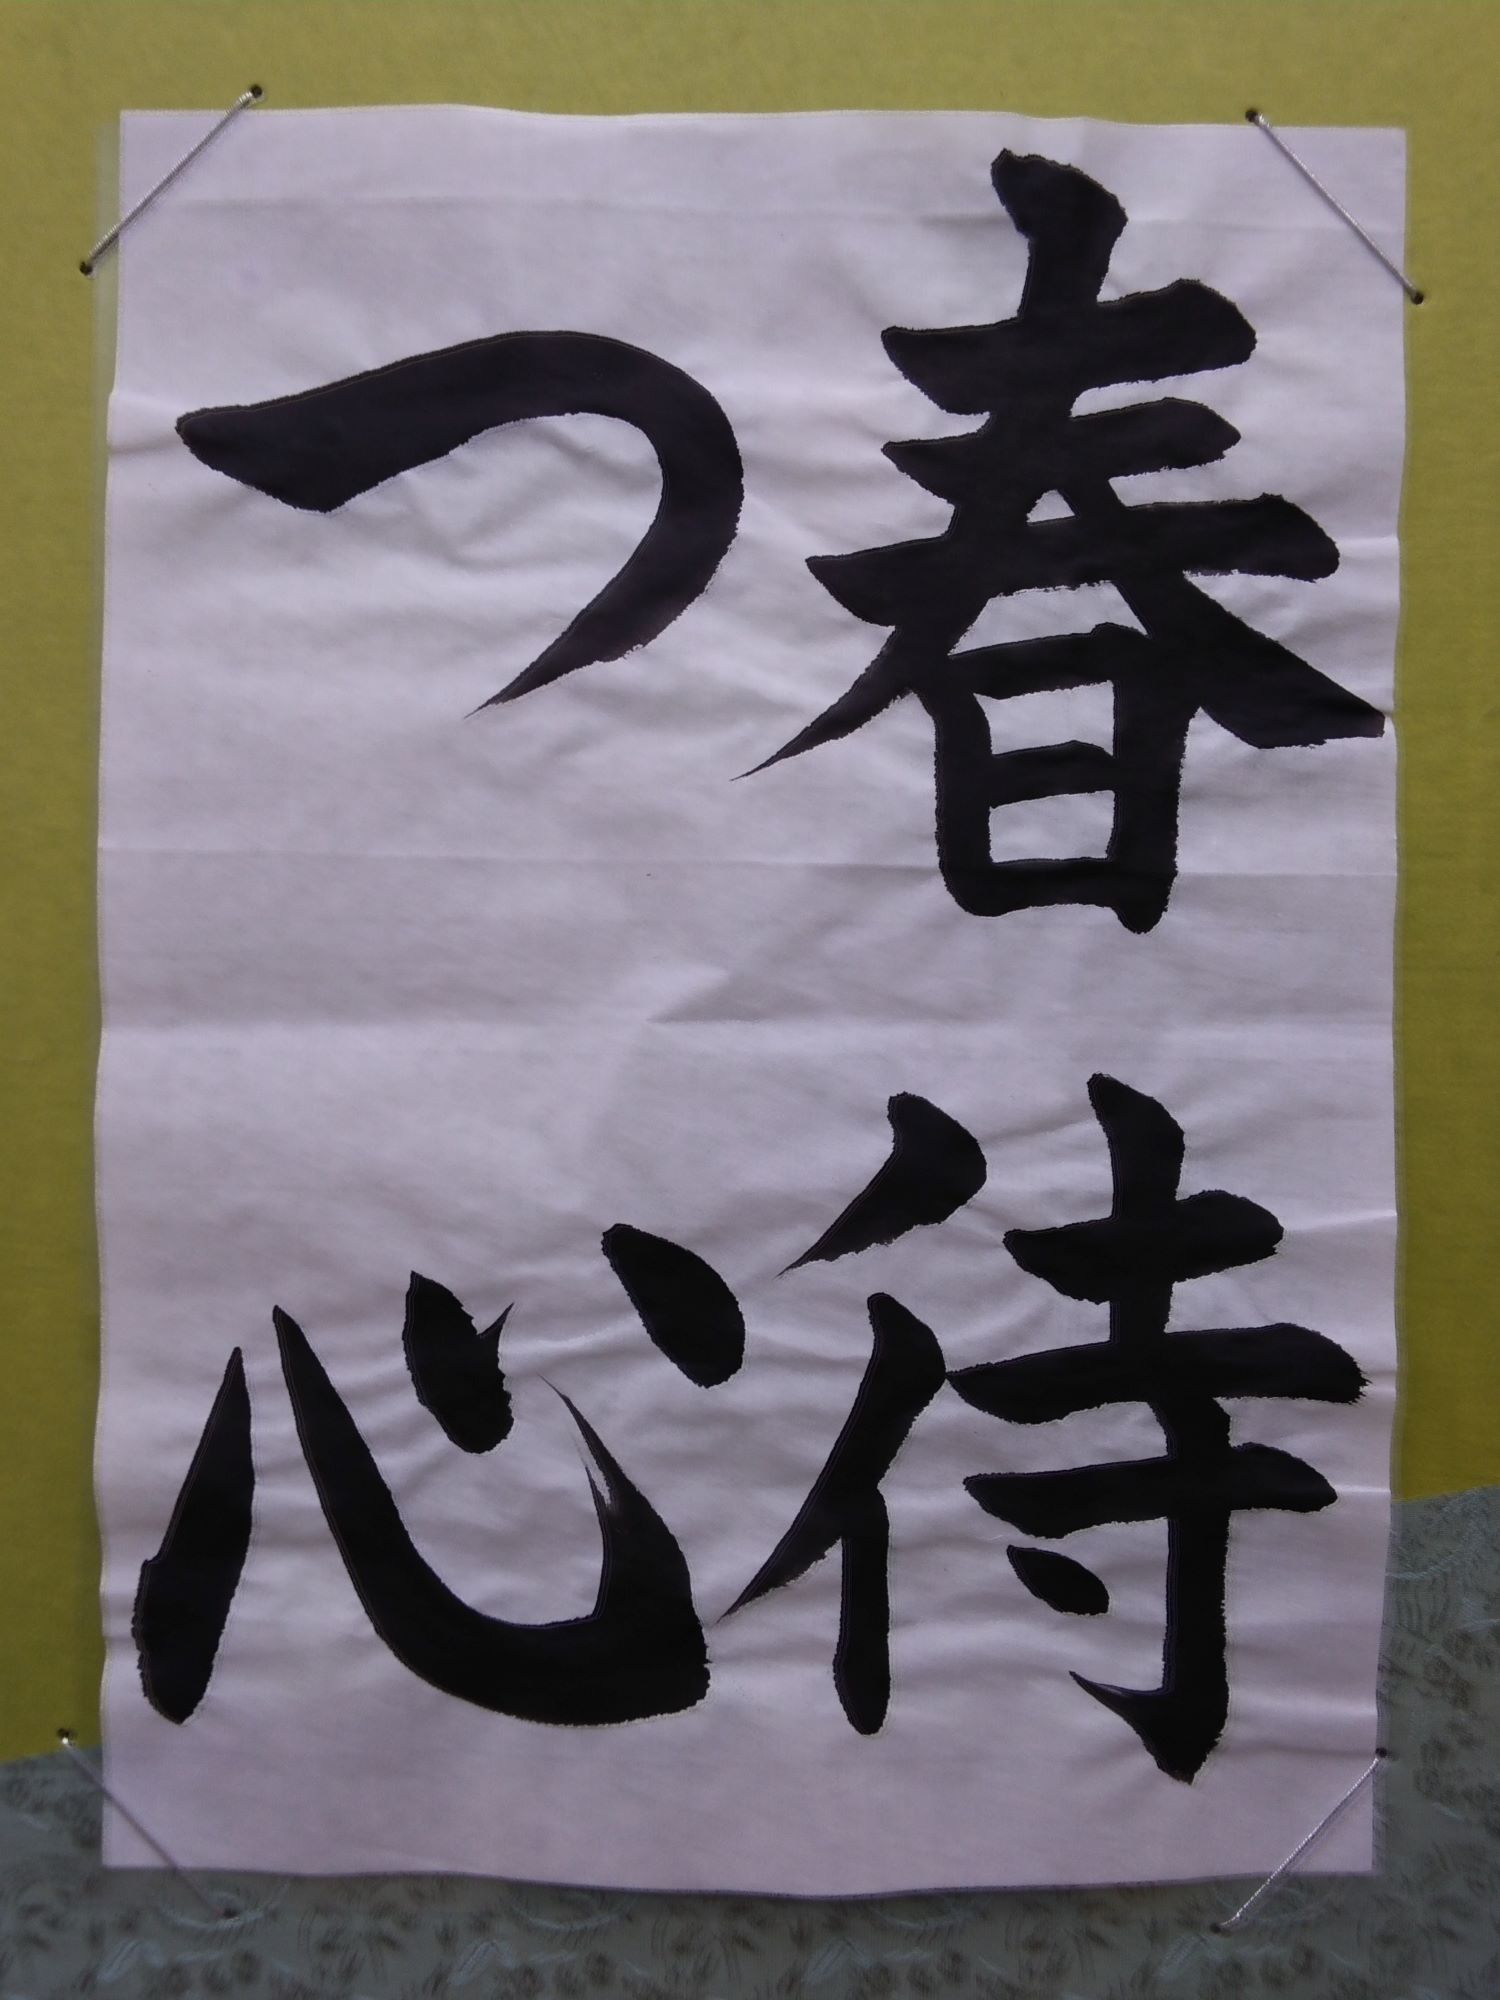 春待
つ心